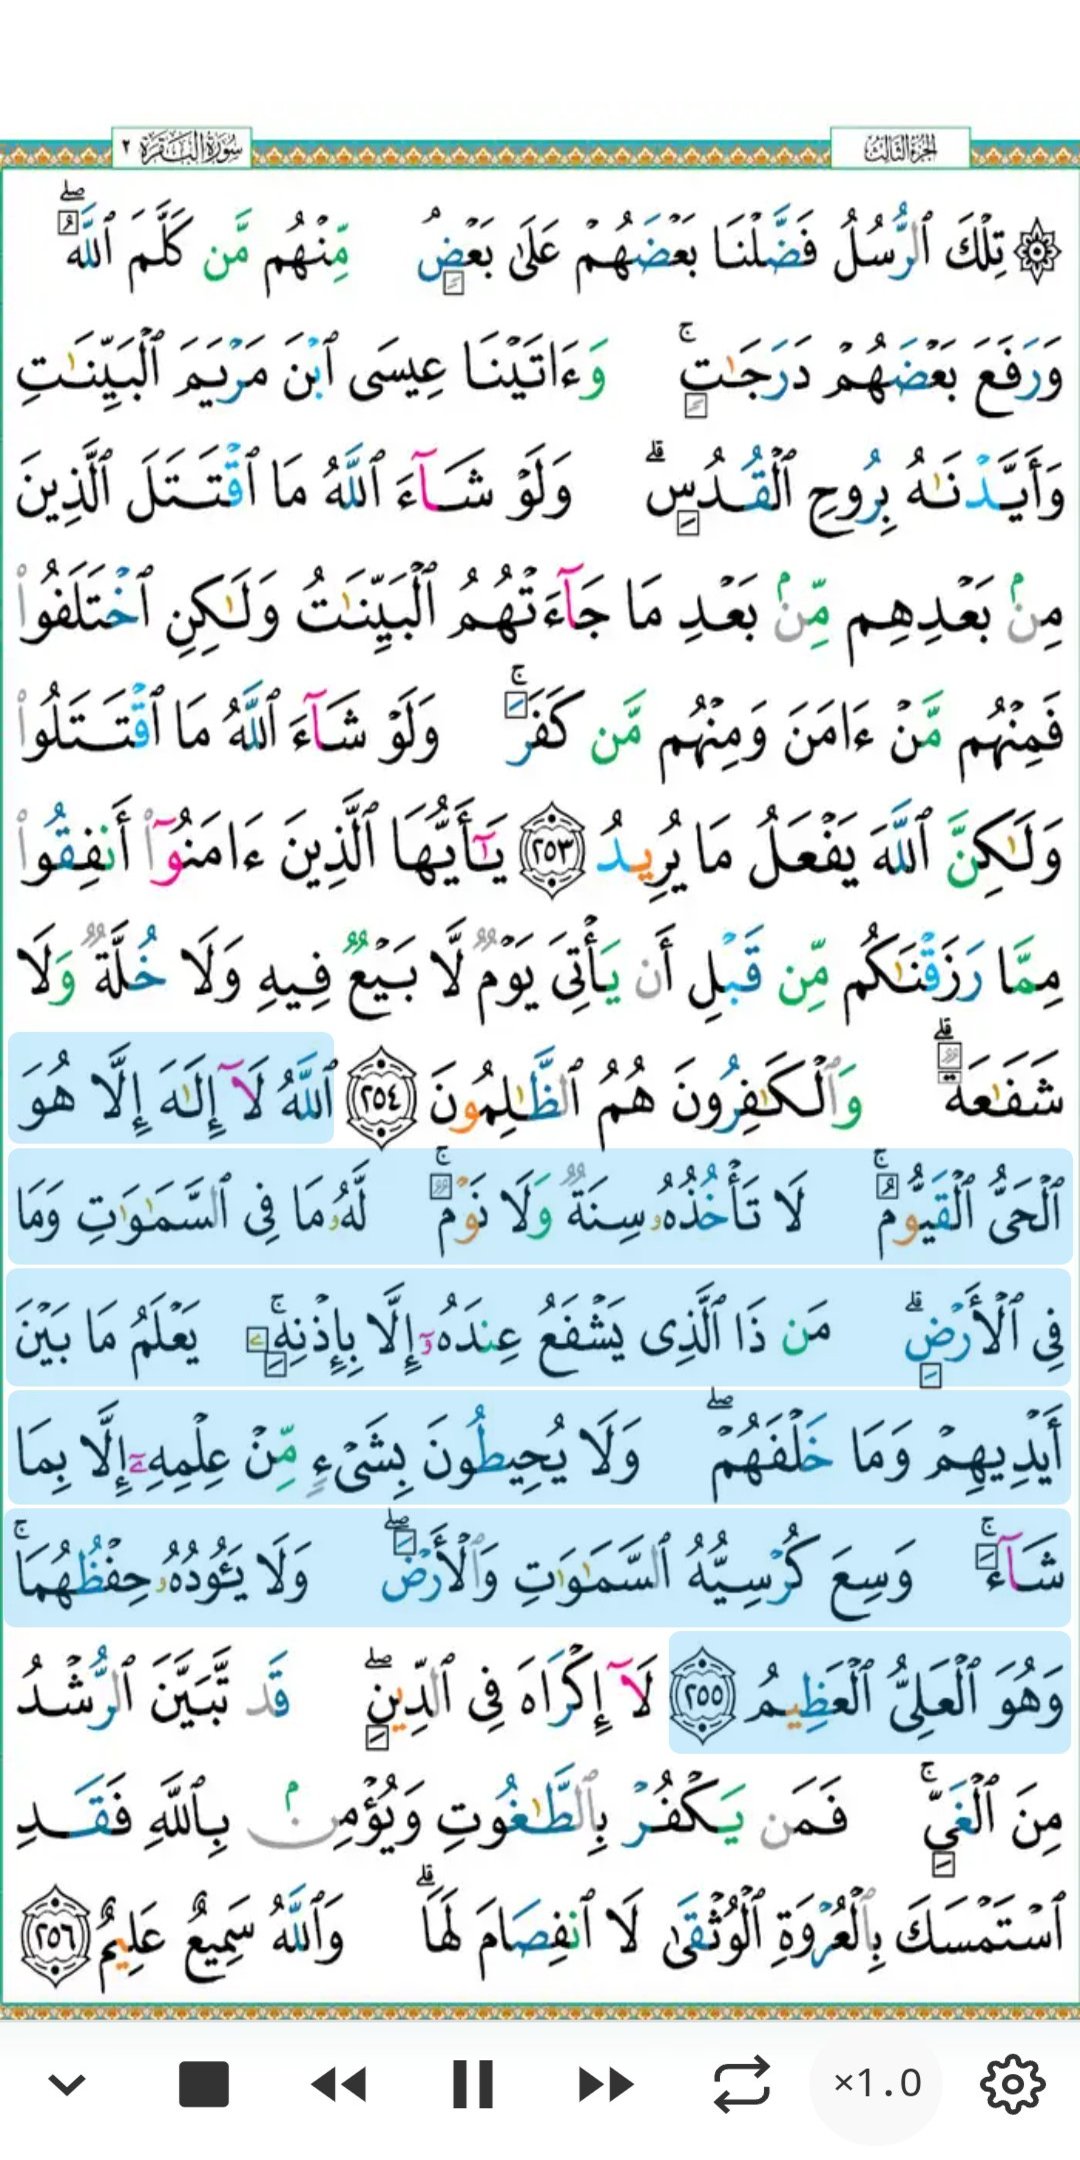 سُورَةُ البَقَرَةِ ٢
الجُزْءُ الثَّالِثُ
۞ تِلْكَ ٱلرُّسُلُ فَضَّلْنَا بَعْضَهُمْ عَلَىٰ بَعْضٍ مِّنْهُم مَّن كَلَّمَ ٱللَّهُ ۖ
وَرَفَعَ بَعْضَهُمْ دَرَجَـٰتٍ ۚ وَءَاتَيْنَا عِيسَى ٱبْنَ مَرْيَمَ ٱلْبَيِّنَـٰتِ
وَأَيَّدْنَـٰهُ بِرُوحِ ٱلْقُدُسِ ۗ وَلَوْ شَآءَ ٱللَّهُ مَا ٱقْتَتَلَ ٱلَّذِينَ
مِنۢ بَعْدِهِم مِّنۢ بَعْدِ مَا جَآءَتْهُمُ ٱلْبَيِّنَـٰتُ وَلَـٰكِنِ ٱخْتَلَفُوا۟
فَمِنْهُم مَّنْ ءَامَنَ وَمِنْهُم مَّن كَفَرَ ۚ وَلَوْ شَآءَ ٱللَّهُ مَا ٱقْتَتَلُوا۟
وَلَـٰكِنَّ ٱللَّهَ يَفْعَلُ مَا يُرِيدُ ٢٥٣ يَـٰٓأَيُّهَا ٱلَّذِينَ ءَامَنُوٓا۟ أَنفِقُوا۟
مِمَّا رَزَقْنَـٰكُم مِّن قَبْلِ أَن يَأْتِىَ يَوْمٌ لَّا بَيْعٌ فِيهِ وَلَا خُلَّةٌ وَلَا
شَفَـٰعَةٌ ۗ وَٱلْكَـٰفِرُونَ هُمُ ٱلظَّـٰلِمُونَ ٢٥٤ ٱللَّهُ لَآ إِلَـٰهَ إِلَّا هُوَ
ٱلْحَىُّ ٱلْقَيُّومُ ۚ لَا تَأْخُذُهُۥ سِنَةٌ وَلَا نَوْمٌ ۚ لَّهُۥ مَا فِى ٱلسَّمَـٰوَٰتِ وَمَا
فِى ٱلْأَرْضِ ۗ مَن ذَا ٱلَّذِى يَشْفَعُ عِندَهُۥٓ إِلَّا بِإِذْنِهِۦ ۚ يَعْلَمُ مَا بَيْنَ
أَيْدِيهِمْ وَمَا خَلْفَهُمْ ۖ وَلَا يُحِيطُونَ بِشَىْءٍ مِّنْ عِلْمِهِۦٓ إِلَّا بِمَا
شَآءَ ۚ وَسِعَ كُرْسِيُّهُ ٱلسَّمَـٰوَٰتِ وَٱلْأَرْضَ ۖ وَلَا يَـُٔودُهُۥ حِفْظُهُمَا ۚ
وَهُوَ ٱلْعَلِىُّ ٱلْعَظِيمُ ٢٥٥ لَآ إِكْرَاهَ فِى ٱلدِّينِ ۖ قَد تَّبَيَّنَ ٱلرُّشْدُ
مِنَ ٱلْغَىِّ ۚ فَمَن يَكْفُرْ بِٱلطَّـٰغُوتِ وَيُؤْمِنۢ بِٱللَّهِ فَقَدِ
ٱسْتَمْسَكَ بِٱلْعُرْوَةِ ٱلْوُثْقَىٰ لَا ٱنفِصَامَ لَهَا ۗ وَٱللَّهُ سَمِيعٌ عَلِيمٌ ٢٥٦
×1.0